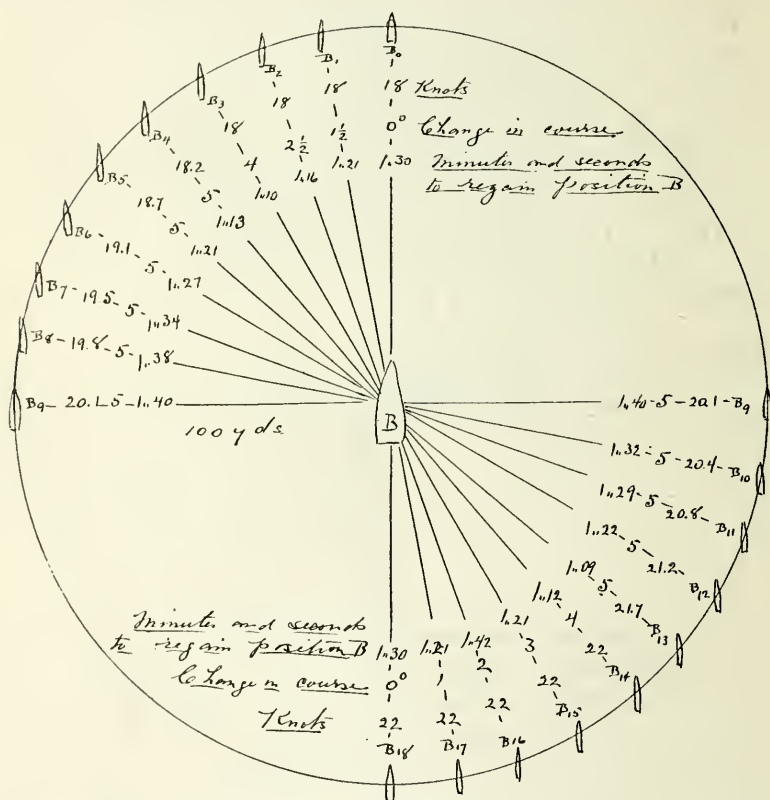 B₀
18 Knots
0° Change in course
1,,30 Minutes and seconds
to regain position B
B₁
18
1½
1,,21
B₂
18
2½
1,,16
B₃
18
4
1,,10
B₄
18.2
5
1,,13
B5
18.7
5
1,,21
B6
19.1
5
1,,27
B7 - 19.5 - 5 - 1,,34
B8 - 19.8 - 5 - 1,,38
B9 - 20.1 - 5 - 1,,40
100 yds.
B
1,,40 - 5 - 20.1 - B9
1,,32 - 5 - 20.4 - B10
1,,29 - 5 - 20.8 - B11
1,,22 - 5 - 21.2 - B12
1,,09
5
21.7
B13
1,,12
4
22
B14
1,,21
3
22
B15
1,,42
2
22
B16
1,,21
1
22
B17
Minutes and seconds
to regain position B 1,,30
Change in course 0°
Knots 22
B18